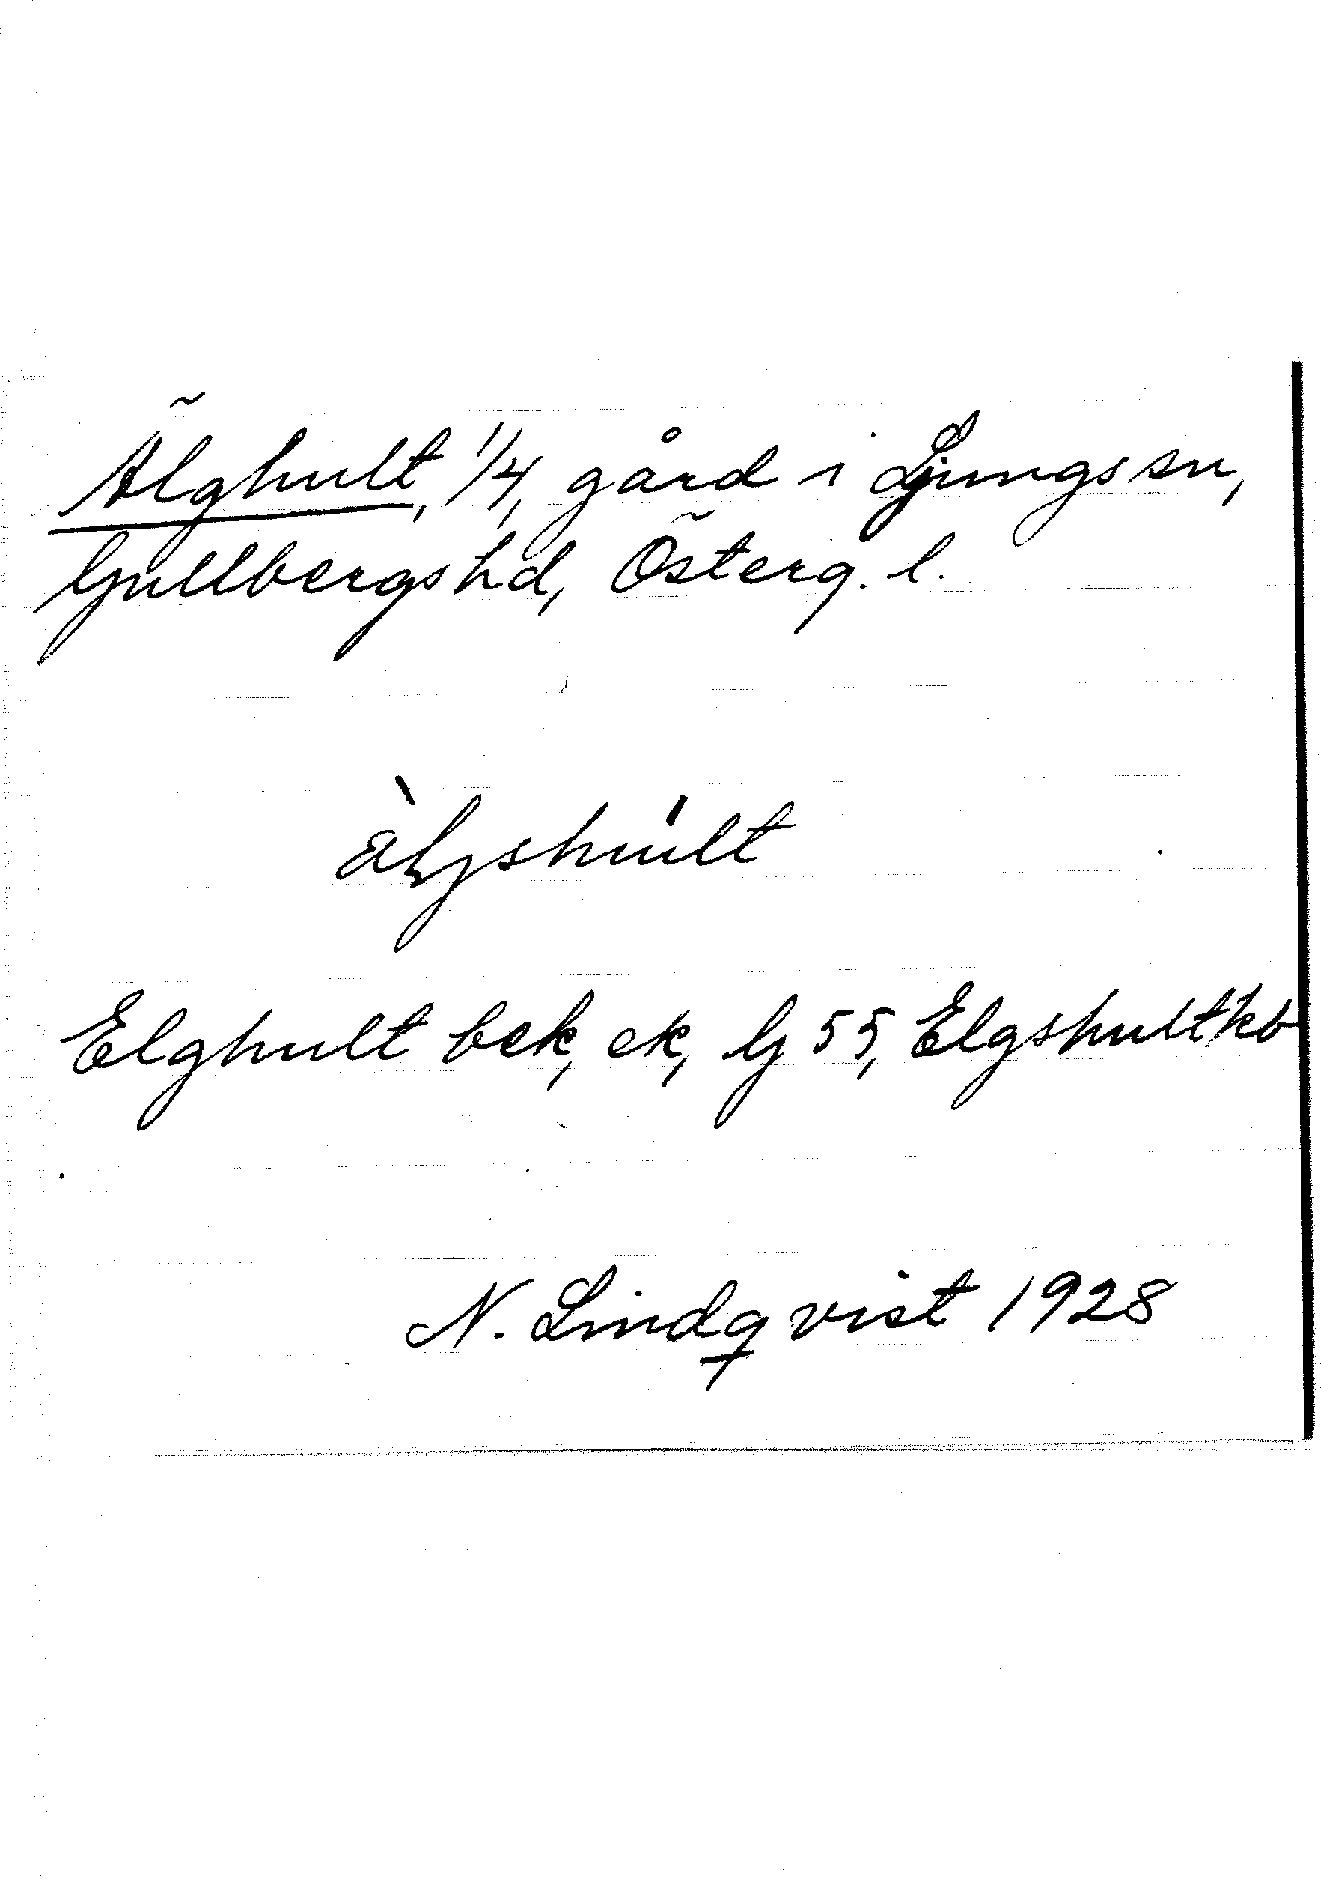 Älghult, 1/4, gård i Ljungs sn,
Gullbergs hd, Österg. l.
àljshúlt
Elghult bek, ek, G 55, Elgshult kb
N. Lindqvist 1928